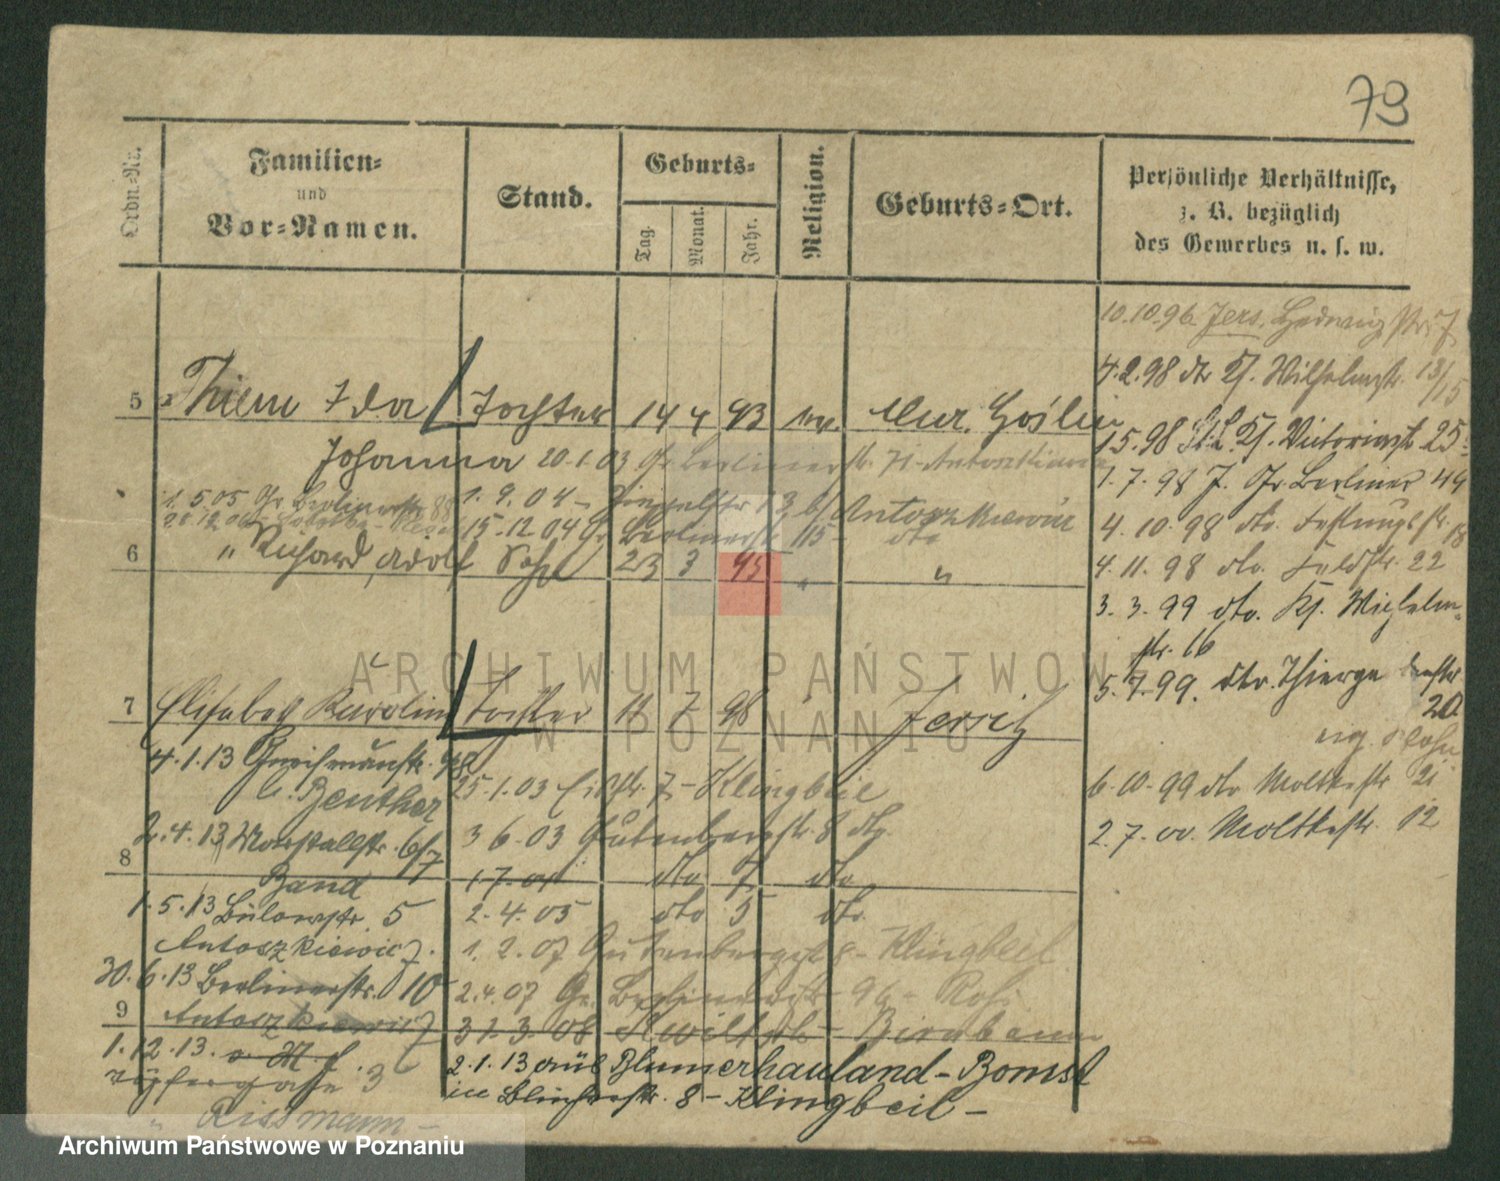 79
Ordn.-Nr.
Familien-
und
Vor-Namen.
Stand.
Geburts-
Tag.
Monat.
Jahr.
Religion.
Geburts-Ort.
Persönliche Verhältnisse,
z. B. bezüglich
des Gewerbes u. s. w.
10.10.96. Jers. Hedwigstr. 7
4.2.98 dto Kl. Wilhelmstr. 13/15
5 Thiem Ida Tochter 14 4 93 ev. Mur. Goslin
1.5.98 St. L. Kl. Victoriastr 25
Johanna 20.1.03 Gr Berlinerstr. 71 - Antoszkiewicz
1.7.98 J. Gr. Berliner 44
1.5.05 Gr Berlinerstr 88 1.9.04 - 13 b/ Antoszkiewicz
15.12.04 Gr Berlinerstr 115 - dto
4.10.98 dto. Festungsstr. 18
6 " Richard, Adolf Sohn 23 3 95 " "
4.11.98 dto. Feldstr. 22
3.3.99 dto. Kl. Wilhelm-
str. 16
5.7.99. dto. Thiergartenstr
20
7 Elisabeth Karoline Tochter 11 7 98 " Jersitz
4.1.13 Gneisenaustr. 
b. Beuther
25.1.03 7 - Klingbeil
6.10.99 dto Moltkestr 21
2.7.00. Moltkestr. 12
2.4.13 Marstallstr. 6/7
Band
3 6.03 Gutenbergstr. 8 dto
8 1.7.04 dto 7 dto
1.5.13 Bülowstr. 5
Antoszkiewicz.
2.4.05 dto 5 dto
1.2.07 Gutenbergstr 8 - Klingbeil
30.6.13 Berlinerstr. 10
Antoszkiewicz
2.4.07 Gr. Berlinerstr 96 -
9 31.3.08 - Birnbaum
1.12.13. v. M.
Töpfergasse 3
" Rissmann -
2.1.13 aus Blumerhauland - Bomst
in 8 - Klingbeil -
ARCHIWUM PAŃSTWOWE
W POZNANIU
Archiwum Państwowe w Poznaniu